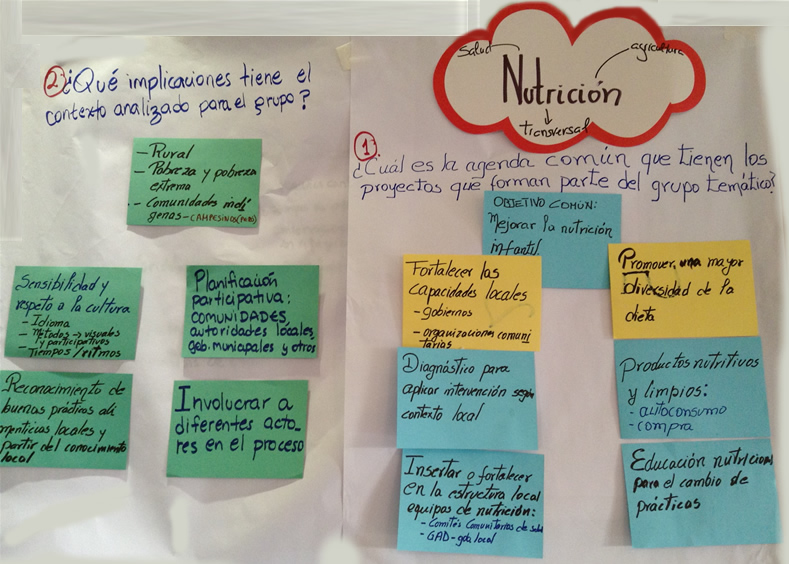 ② ¿Qué implicaciones tiene el
contexto analizado para el grupo?
- Rural
- Pobreza y pobreza
extrema
- Comunidades indí
genas - CAMPESINOS
Sensibilidad y
respeto a la cultura
- Idioma
métodos → visuales
y participativos
Tiempos/ritmos
Planificación
participativa:
COMUNIDADES,
autoridades locales,
gob. municipales y otros
Reconocimiento de
buenas prácticas ali
menticias locales y
partir del conocimiento
local
Involucrar a
diferentes acto_
res en el proceso
salud
agricultura
Nutrición
↓
transversal
①
¿Cuál es la agenda común que tienen los
proyectos que forman parte del grupo temático?
OBJETIVO COMÚN:
Mejorar la nutrición
infantil.
Fortalecer las
capacidades locales
- gobiernos
- organizaciones comuni
tarias
Promover una mayor
diversidad de la
dieta
Diagnóstico para
aplicar intervención según
contexto local
Productos nutritivos
y limpios:
- autoconsumo
- compra
Insertar o fortalecer
en la estructura local
equipos de nutrición:
- Comités Comunitarios de salud
- GAD - gob. local
Educación nutricional
para el cambio de
prácticas